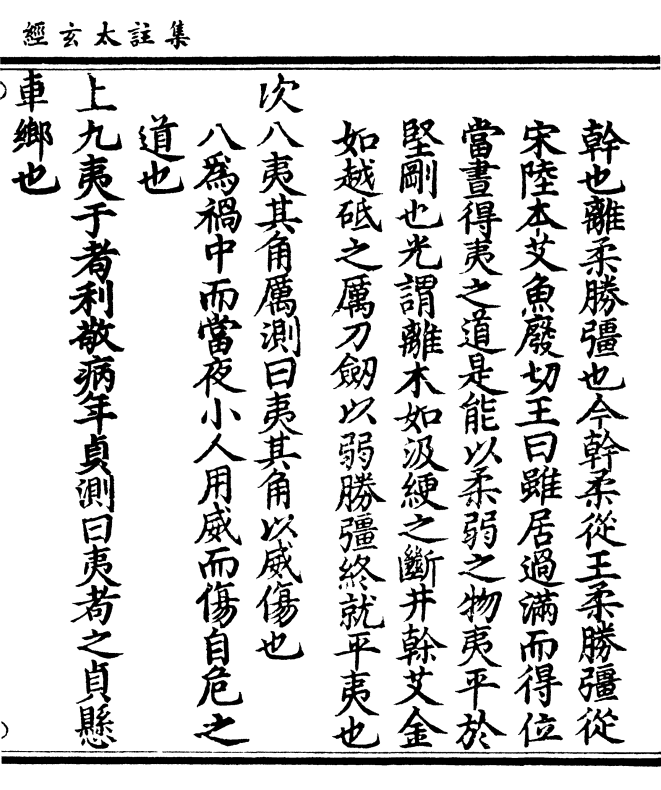 集註太玄經
幹也離柔勝彊也今幹柔從王柔勝彊從
宋陸本艾魚廢切王曰雖居過滿而得位
當晝得夷之道是能以柔弱之物夷平於
堅剛也光謂離木如汲綆之斷井榦艾金
如越砥之厲刀劒以弱勝彊終就平夷也
次八夷其角厲測曰夷其角以威傷也
八爲禍中而當夜小人用威而傷自危之
道也
上九夷于耇利敬病年貞測曰夷耇之貞懸
車鄉也